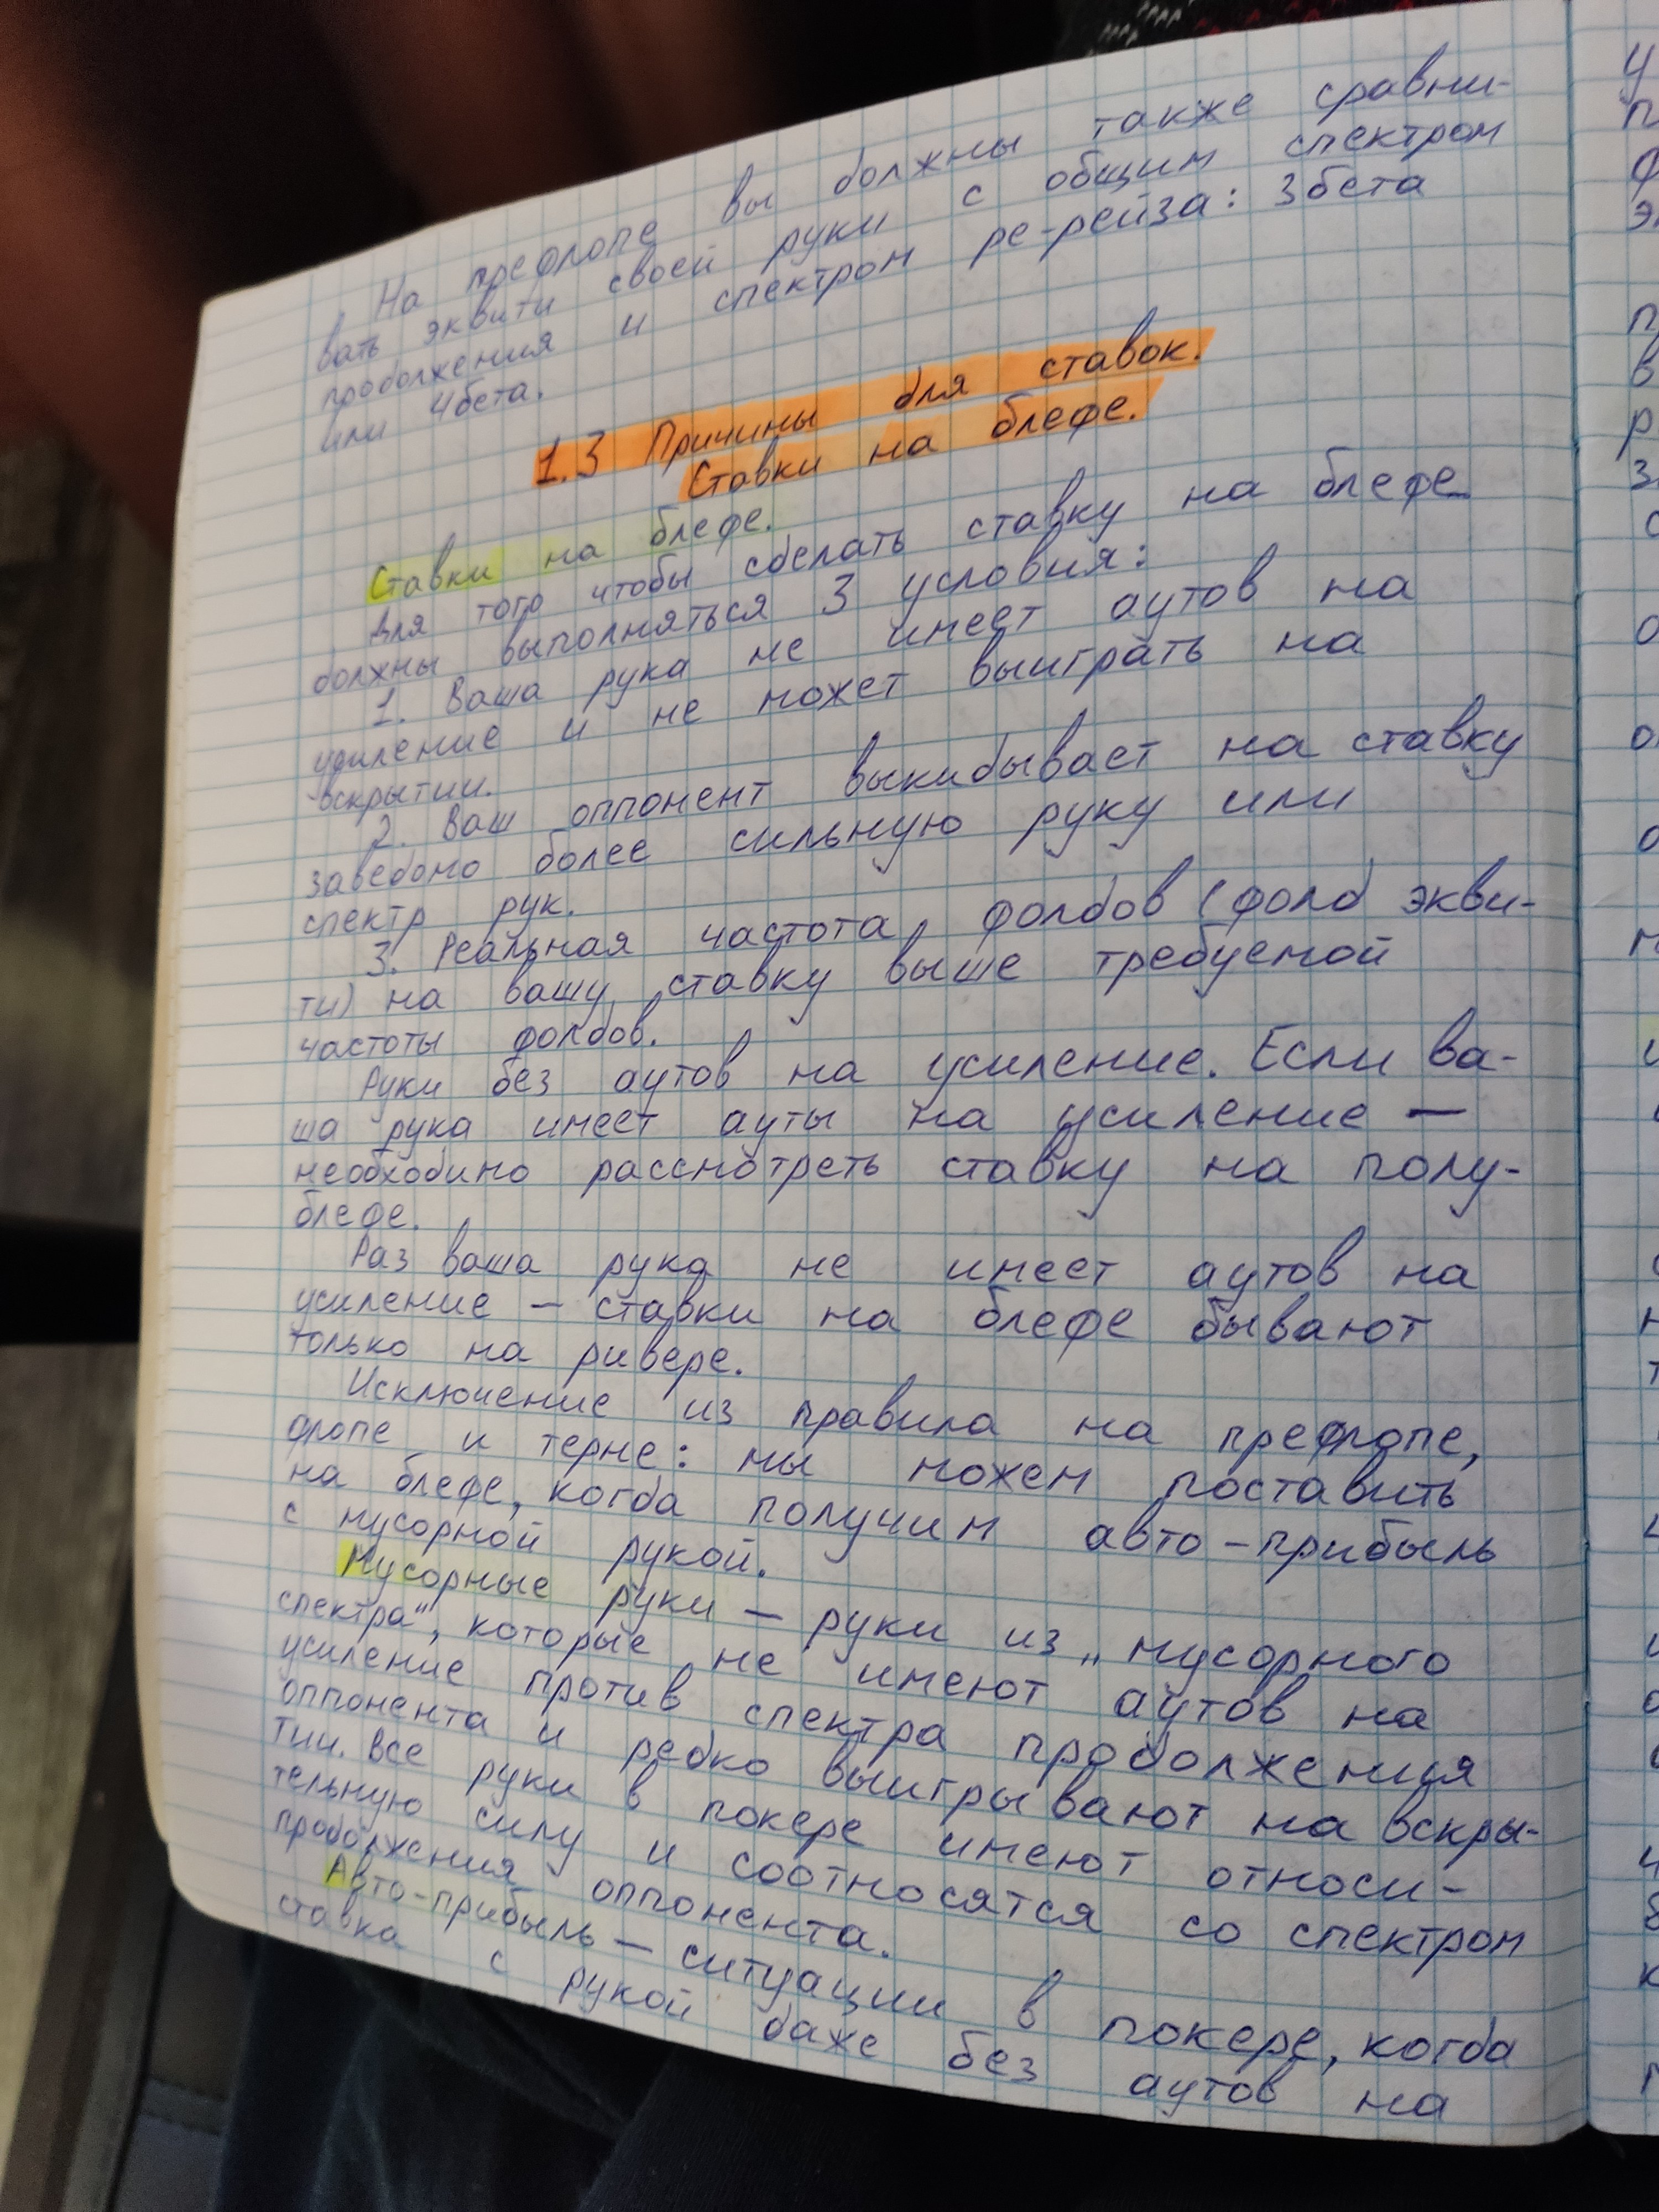 На префлопе вы должны также сравни-
вать эквити своей руки с общим спектром
продолжения и спектром ре-рейза: 3бета
или 4бета.
1.3 Причины для ставок.
Ставки на блефе.
Ставки на блефе.
Для того чтобы сделать ставку на блефе
должны выполняться 3 условия:
1. Ваша рука не имеет аутов на
усиление и не может выиграть на
вскрытии.
2. Ваш оппонент выкидывает на ставку
заведомо более сильную руку или
спектр рук.
3. Реальная частота фолдов (фолд экви-
ти) на вашу ставку выше требуемой
частоты фолдов.
Руки без аутов на усиление. Если ва-
ша рука имеет ауты на усиление —
необходимо рассмотреть ставку на полу-
блефе.
Раз ваша рука не имеет аутов на
усиление — ставки на блефе бывают
только на ривере.
Исключение из правила на префлопе,
флопе и терне: мы можем поставить
на блефе, когда получим авто-прибыль
с мусорной рукой.
Мусорные руки — руки из „мусорного
спектра", которые не имеют аутов на
усиление против спектра продолжения
оппонента и редко выигрывают на вскры-
тии. Все руки в покере имеют относи-
тельную силу и соотносятся со спектром
продолжения оппонента.
Авто-прибыль — ситуации в покере, когда
ставка с рукой даже без аутов на